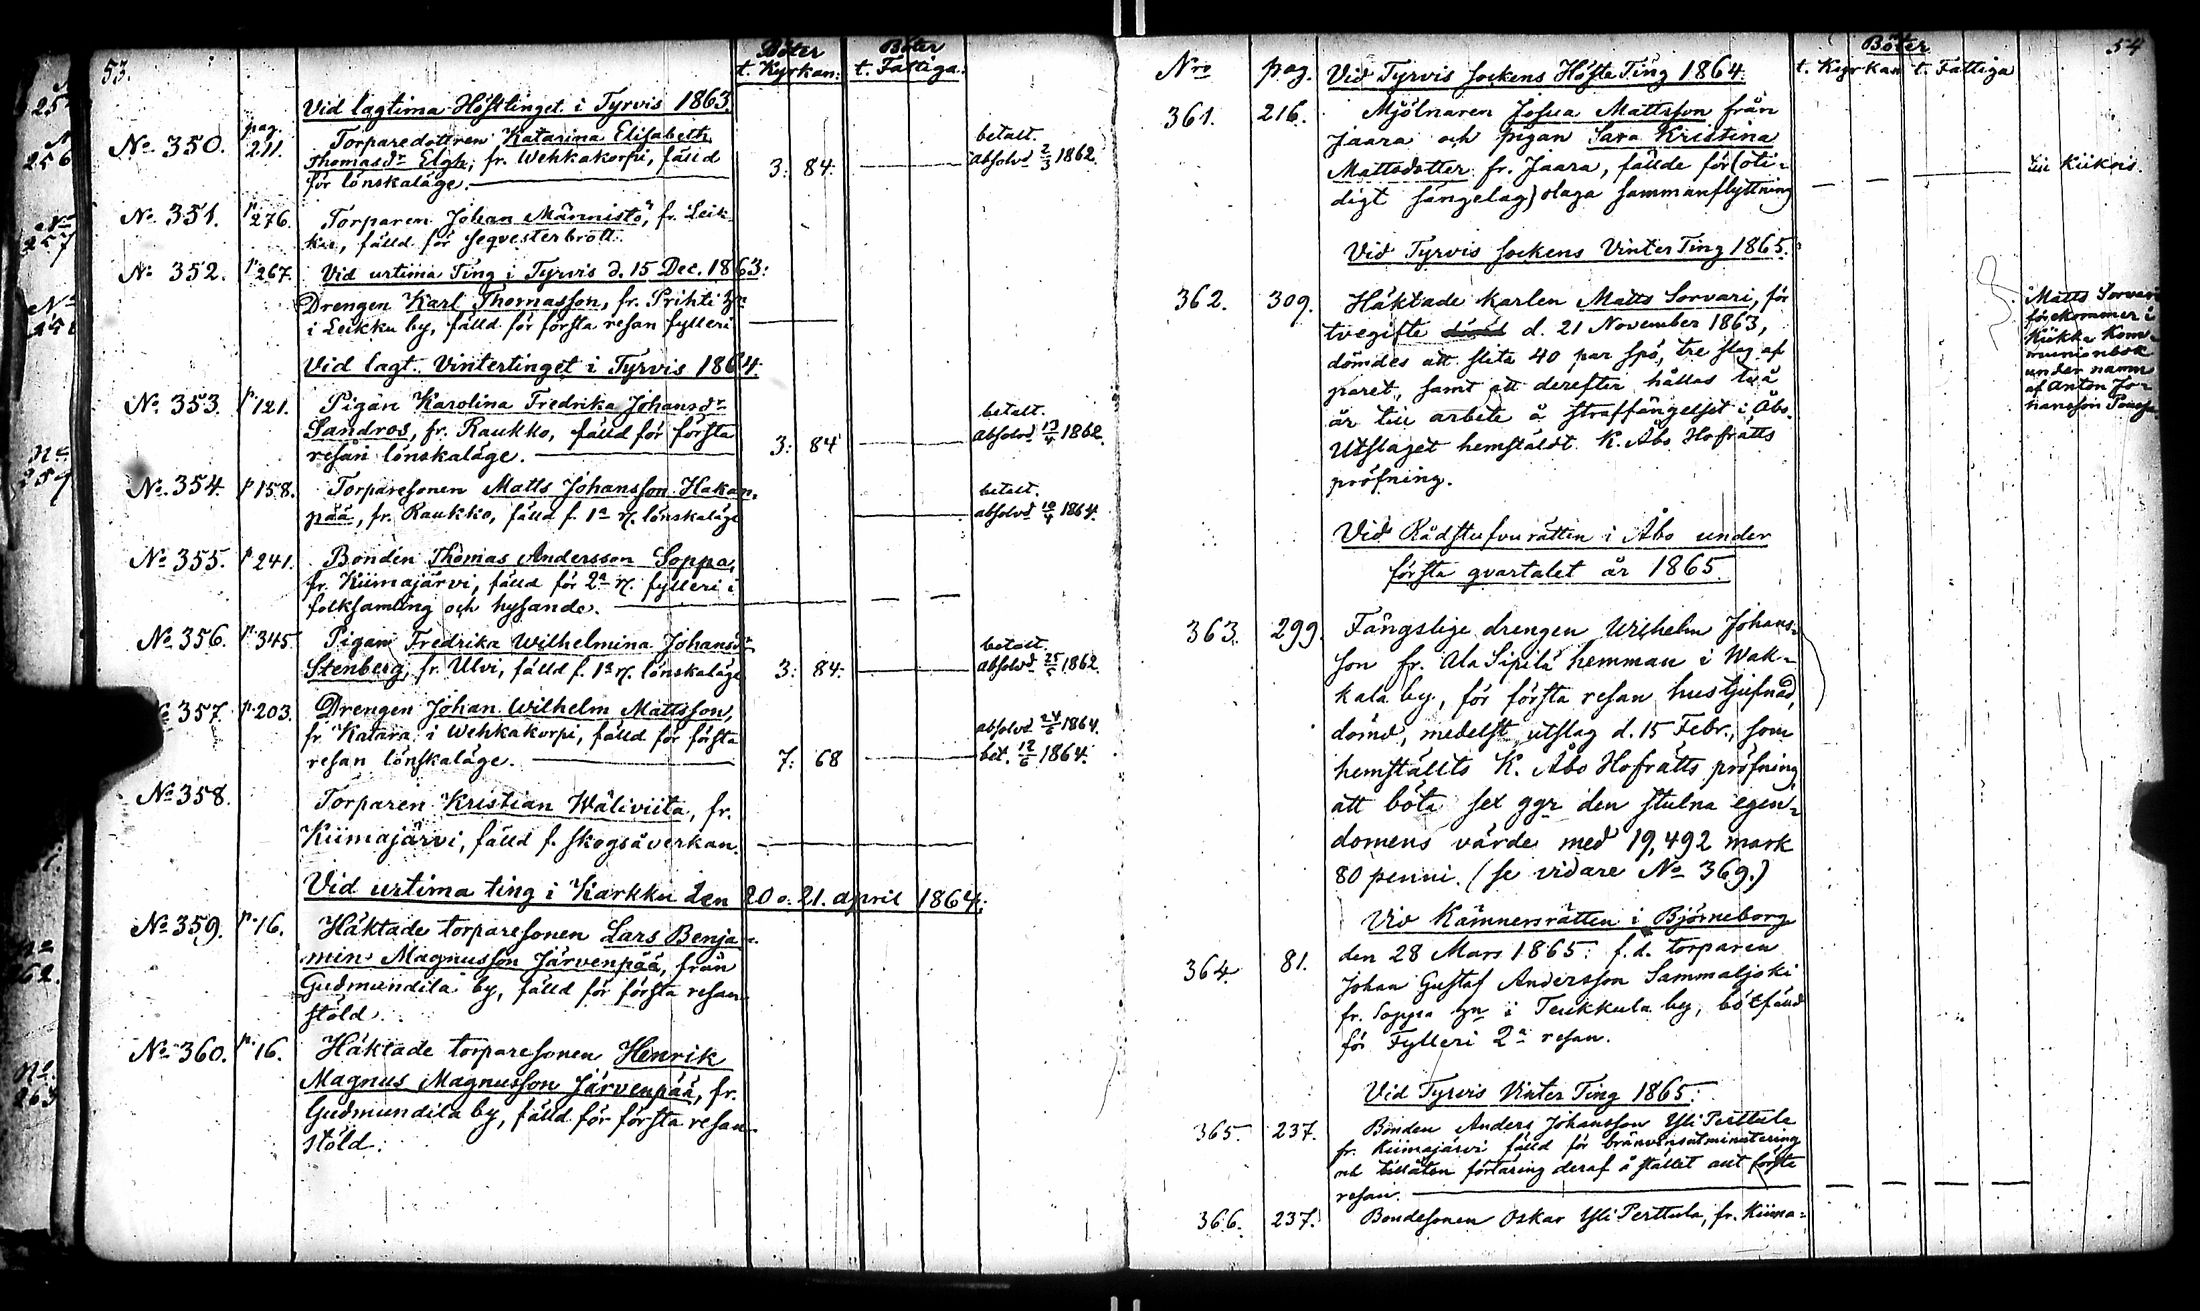 53.
Böter
t. Kyrkan:
Böter
t. Fattiga:
Vid lagtima Höstlinget i Tyrvis 1863.
No 350.
pag.
211.
Torparedottren Katarina Elisabeth
Thomasdr Elgh, fr. Wehkakorpi, fälld
för lönskaläge.
3: 84.
betalt.
absolvd 2/3 1862.
No 351. p 276. Torparen Johan Männistö, fr. Leik
ku, fälld för seqvesterbrott.
No 352. p 267. Vid urtima Ting i Tyrvis d. 15 Dec. 1863:
Drengen Karl Thomasson, fr. Prihti
i Leikku by, fälld för första resan fylleri
Vid lagt. Vintertinget i Tyrvis 1864.
No 353. p 121. Pigan Karolina Fredrika Johansdr
Sandros, fr. Raukko, fälld för första
resan lönskaläge.
3: 84
betalt.
absolvd 1862.
No 354. p 158. Torparesonen Matts Johansson Hakan-
pää, fr. Raukko, fälld f. 1a r/. lönskaläge
betalt.
absolvd 10/4 1864.
No 355. p 241. Bonden Thomas Andersson Soppa,
fr. Kiimajärvi, fälld för 2a r/. fylleri i
folksamling och hysande.
No 356. p 345 Pigan Fredrika Wilhelmina Johansdr
Stenberg, fr. Ulvi, fälld f. 1a r/. lönskaläge
3: 84.
betalt.
absolvd 1862
357. p 203. Drengen Johan Wilhelm Mattsson,
fr. Katara i Wehkakorpi, fälld för första
resan lönskaläge.
7: 68
absolvd 24/6 1864.
bet. 12/6 1864.
No 358.
Torparen Kristian Wäliviita, fr.
Kiimajärvi, fälld f. skogsåverkan.
Vid urtima ting i Karkku den 20 o. 21. april 1864:
No 359. p. 16. Häktade torparesonen Lars Benja-
min Magnusson Järvenpää, från
Gudmundila by, fälld för första resan
stöld.
No 360. p. 16. Häktade torparesonen Henrik
Magnus Magnusson Järvenpää, fr.
Gudmundila by, fälld för första resan
stöld.
54
Nro pag. Vid Tyrvis sockens Höste Ting 1864.
Böter
t. Kyrkan t. Fattiga
361. 216. Mjölnaren Josua Mattsson från
Jaara och pigan Sara Kristina
Mattsdotter fr. Jaara, fällde för (oti-
digt sängelag) olaga sammanflyttning
till Kiikois.
Vid Tyrvis sockens Vinter Ting 1865:
362. 309. Häktade karlen Matts Sorvari, för
tvegifte d. 21 November 1863,
dömdes att slita 40 par spö, tre slag af
paret, samt att derefter hållas två
år till arbete å straffängelset i Åbo.
Utslaget hemstäldt K. Åbo Hofrätts
pröfning.
Matts Sorvari
förekommer i
Kiikka Kom-
munionbok
under namn
af Anton Jo-
hansson
Vid Rådstufvurätten i Åbo under
första qvartalet år 1865.
363. 299. Fängslige drengen Wilhelm Johans-
son fr. Ala Sipilä hemman i Wak-
kala by, för första resan hustjufnad,
dömd, medelst utslag d. 15 Febr., som
hemställts K. Åbo Hofrätts pröfning
att böta sex ggr den stulna egen-
domens värde med 19,492 mark
80 penni. (se vidare No 369.)
Vid Kämnersrätten i Björneborg
den 28 Mars 1865: f.d. torparen
364. 81. Johan Gustaf Andersson Sammaljoki
fr. Soppa i Teukkula by, bötfälld
för Fylleri 2a resan.
Vid Tyrvis Vinter Ting 1865:
365. 237. Bonden Anders Johansson Yli Perttula
fr. Kiimajärvi fälld för bränvinsutminutering
och tillåten förtäring deraf å stället allt första
resan.
366. 237. Bondesonen Oskar Yli Perttula, fr. Kiima-